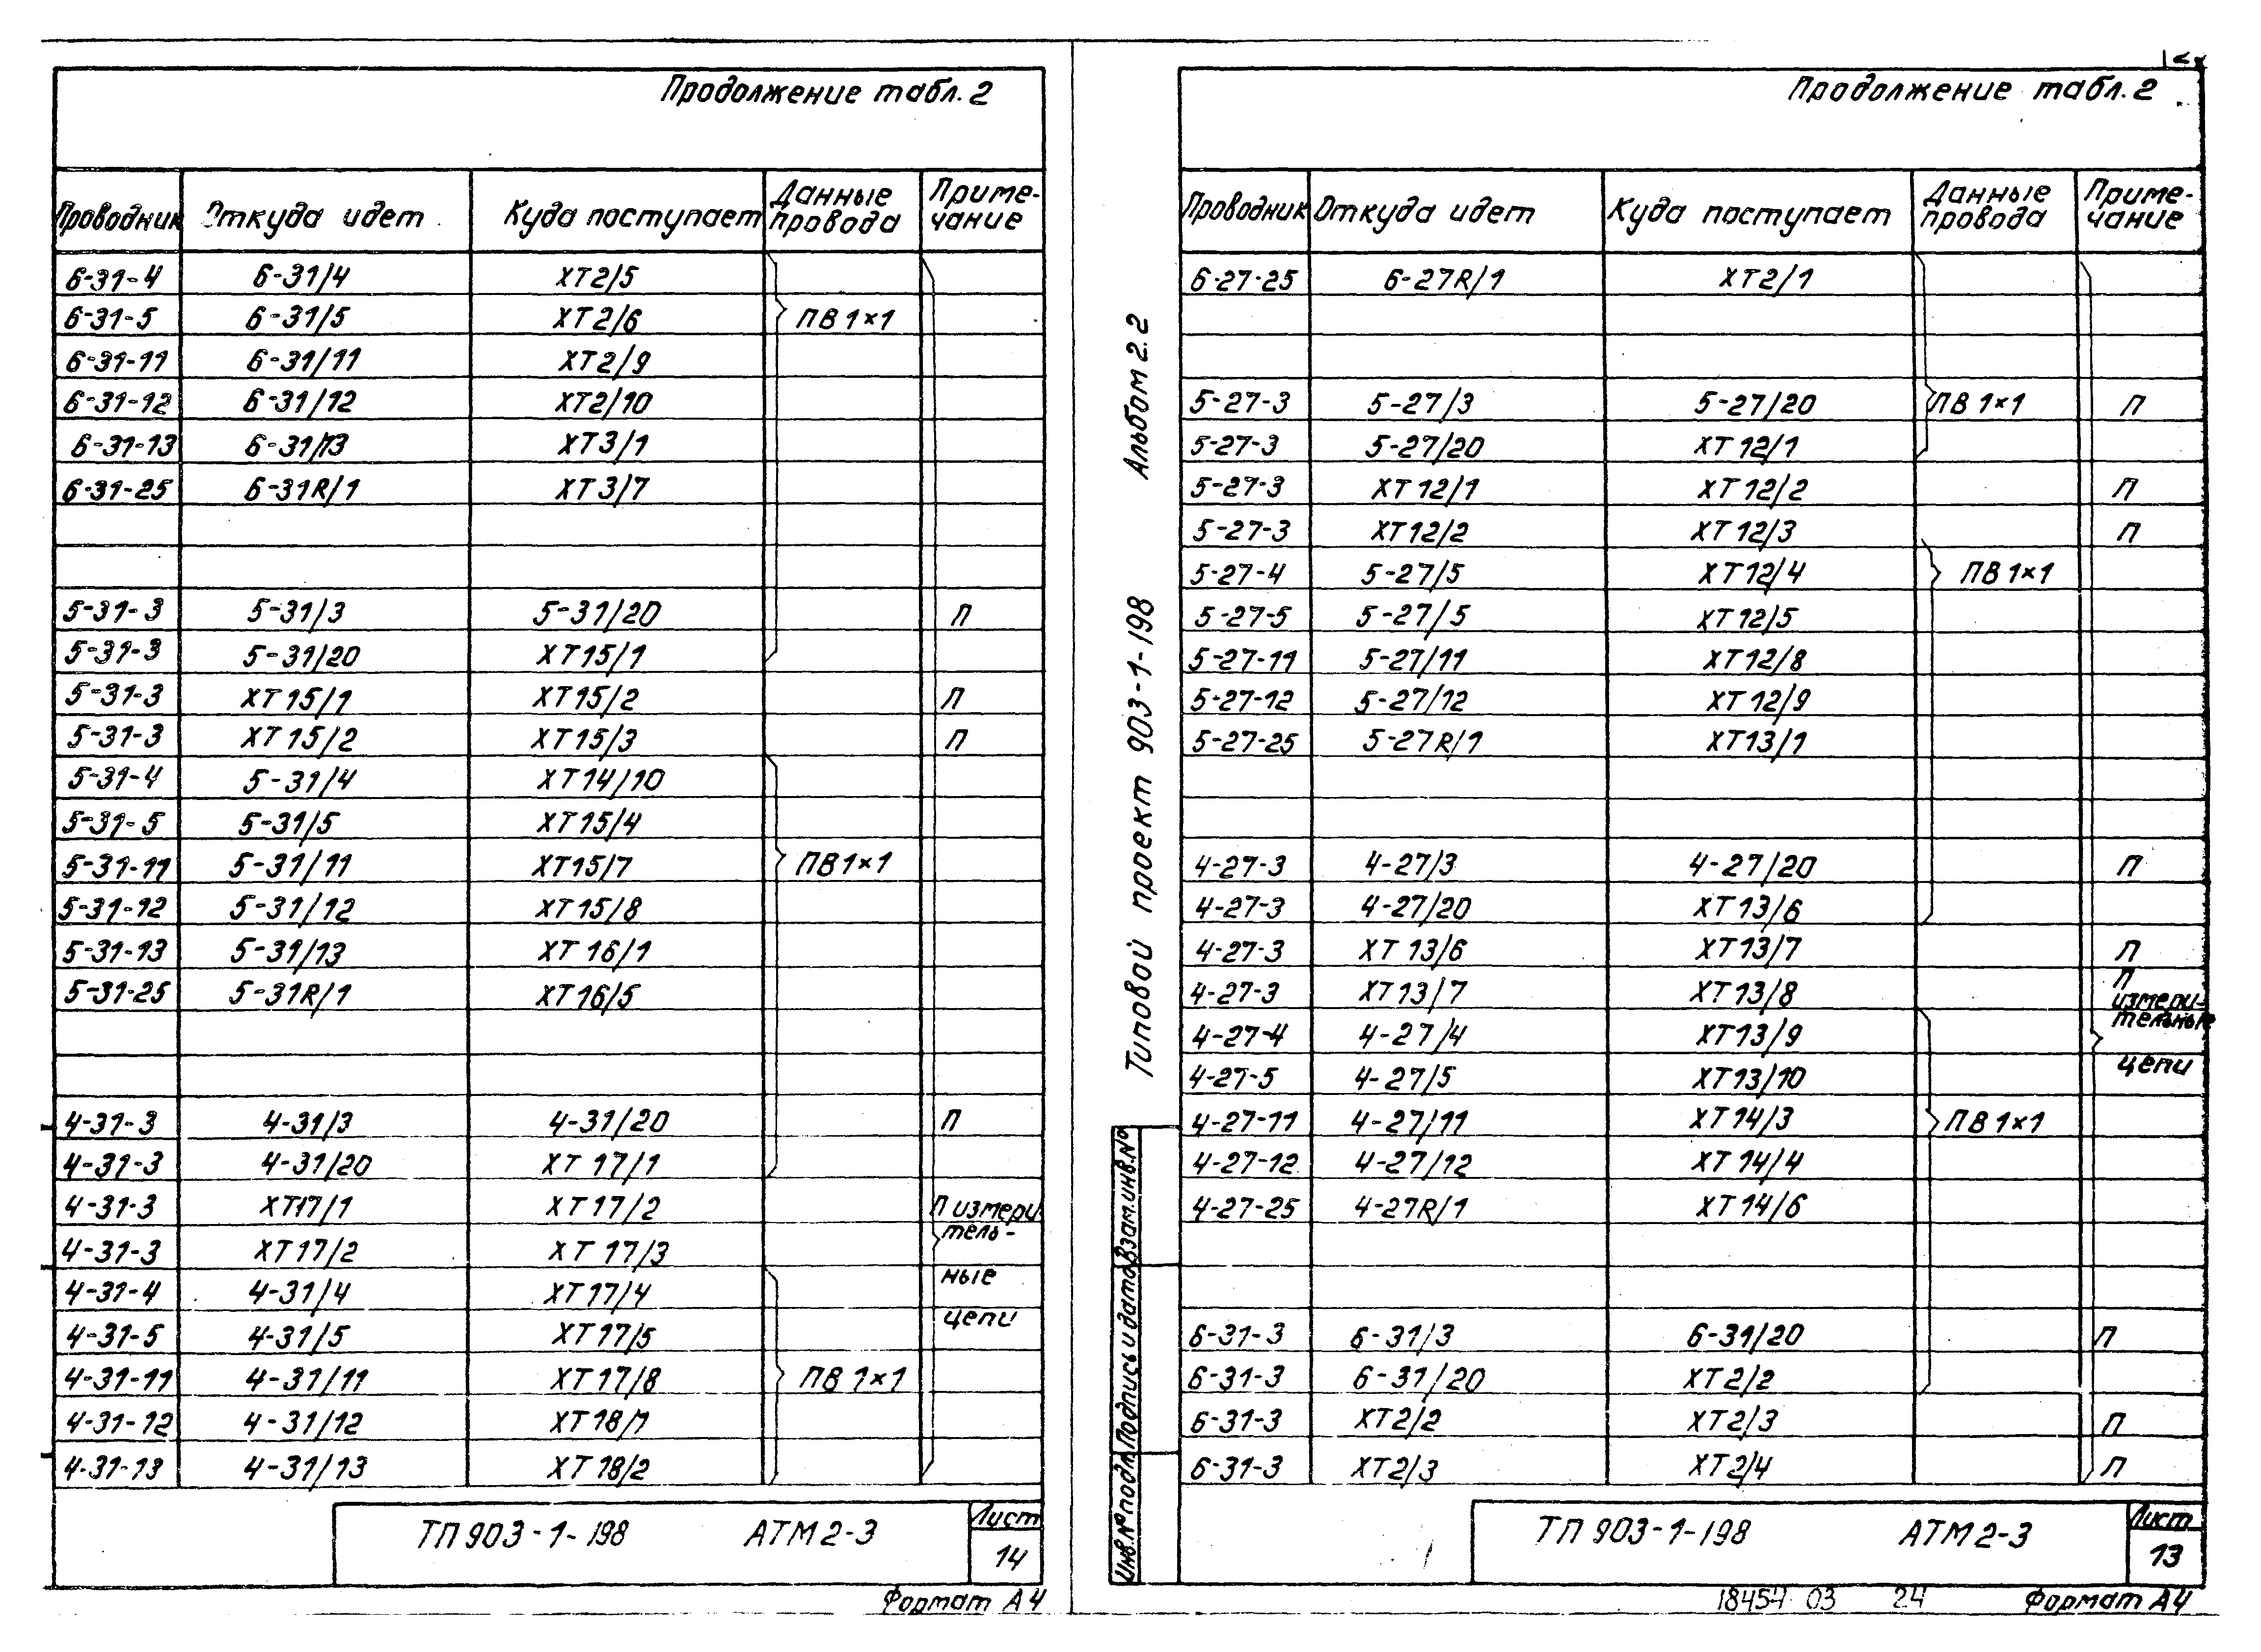 Продолжение табл. 2
Проводник Откуда идет Куда поступает Данные провода Примечание
6-31-4 6-31/4 ХТ2/5
6-31-5 6-31/5 ХТ2/6 ПВ 1×1
6-31-11 6-31/11 ХТ2/9
6-31-12 6-31/12 ХТ2/10
6-31-13 6-31/13 ХТ3/1
6-31-25 6-31R/1 ХТ3/7
5-31-3 5-31/3 5-31/20 П
5-31-3 5-31/20 ХТ15/1
5-31-3 ХТ15/1 ХТ15/2 П
5-31-3 ХТ15/2 ХТ15/3 П
5-31-4 5-31/4 ХТ14/10
5-31-5 5-31/5 ХТ15/4
5-31-11 5-31/11 ХТ15/7 ПВ 1×1
5-31-12 5-31/12 ХТ15/8
5-31-13 5-31/13 ХТ16/1
5-31-25 5-31R/1 ХТ16/5
4-31-3 4-31/3 4-31/20 П
4-31-3 4-31/20 ХТ17/1
4-31-3 ХТ17/1 ХТ17/2 П измери
тель-
4-31-3 ХТ17/2 ХТ17/3
4-31-4 4-31/4 ХТ17/4 ные
4-31-5 4-31/5 ХТ17/5 цепи
4-31-11 4-31/11 ХТ17/8 ПВ 1×1
4-31-12 4-31/12 ХТ18/1
4-31-13 4-31/13 ХТ18/2
ТП 903-1-198 АТМ2-3
Лист
14
Формат А4
Альбом 2.2
Типовой проект 903-1-198
Взам.инв.№
Подпись и дата
Инв.№ подл.
Продолжение табл. 2
Проводник Откуда идет Куда поступает Данные провода Примечание
6-27-25 6-27R/1 ХТ2/1
5-27-3 5-27/3 5-27/20 ПВ 1×1 П
5-27-3 5-27/20 ХТ12/1
5-27-3 ХТ12/1 ХТ12/2 П
5-27-3 ХТ12/2 ХТ12/3 П
5-27-4 5-27/5 ХТ12/4 ПВ 1×1
5-27-5 5-27/5 ХТ12/5
5-27-11 5-27/11 ХТ12/8
5-27-12 5-27/12 ХТ12/9
5-27-25 5-27R/1 ХТ13/1
4-27-3 4-27/3 4-27/20 П
4-27-3 4-27/20 ХТ13/6
4-27-3 ХТ13/6 ХТ13/7 П
4-27-3 ХТ13/7 ХТ13/8 П
измери-
тельные
4-27-4 4-27/4 ХТ13/9
4-27-5 4-27/5 ХТ13/10 цепи
4-27-11 4-27/11 ХТ14/3 ПВ 1×1
4-27-12 4-27/12 ХТ14/4
4-27-25 4-27R/1 ХТ14/6
6-31-3 6-31/3 6-31/20 П
6-31-3 6-31/20 ХТ2/2
6-31-3 ХТ2/2 ХТ2/3 П
6-31-3 ХТ2/3 ХТ2/4 П
ТП 903-1-198 АТМ2-3
Лист
13
18457 03 24 Формат А4